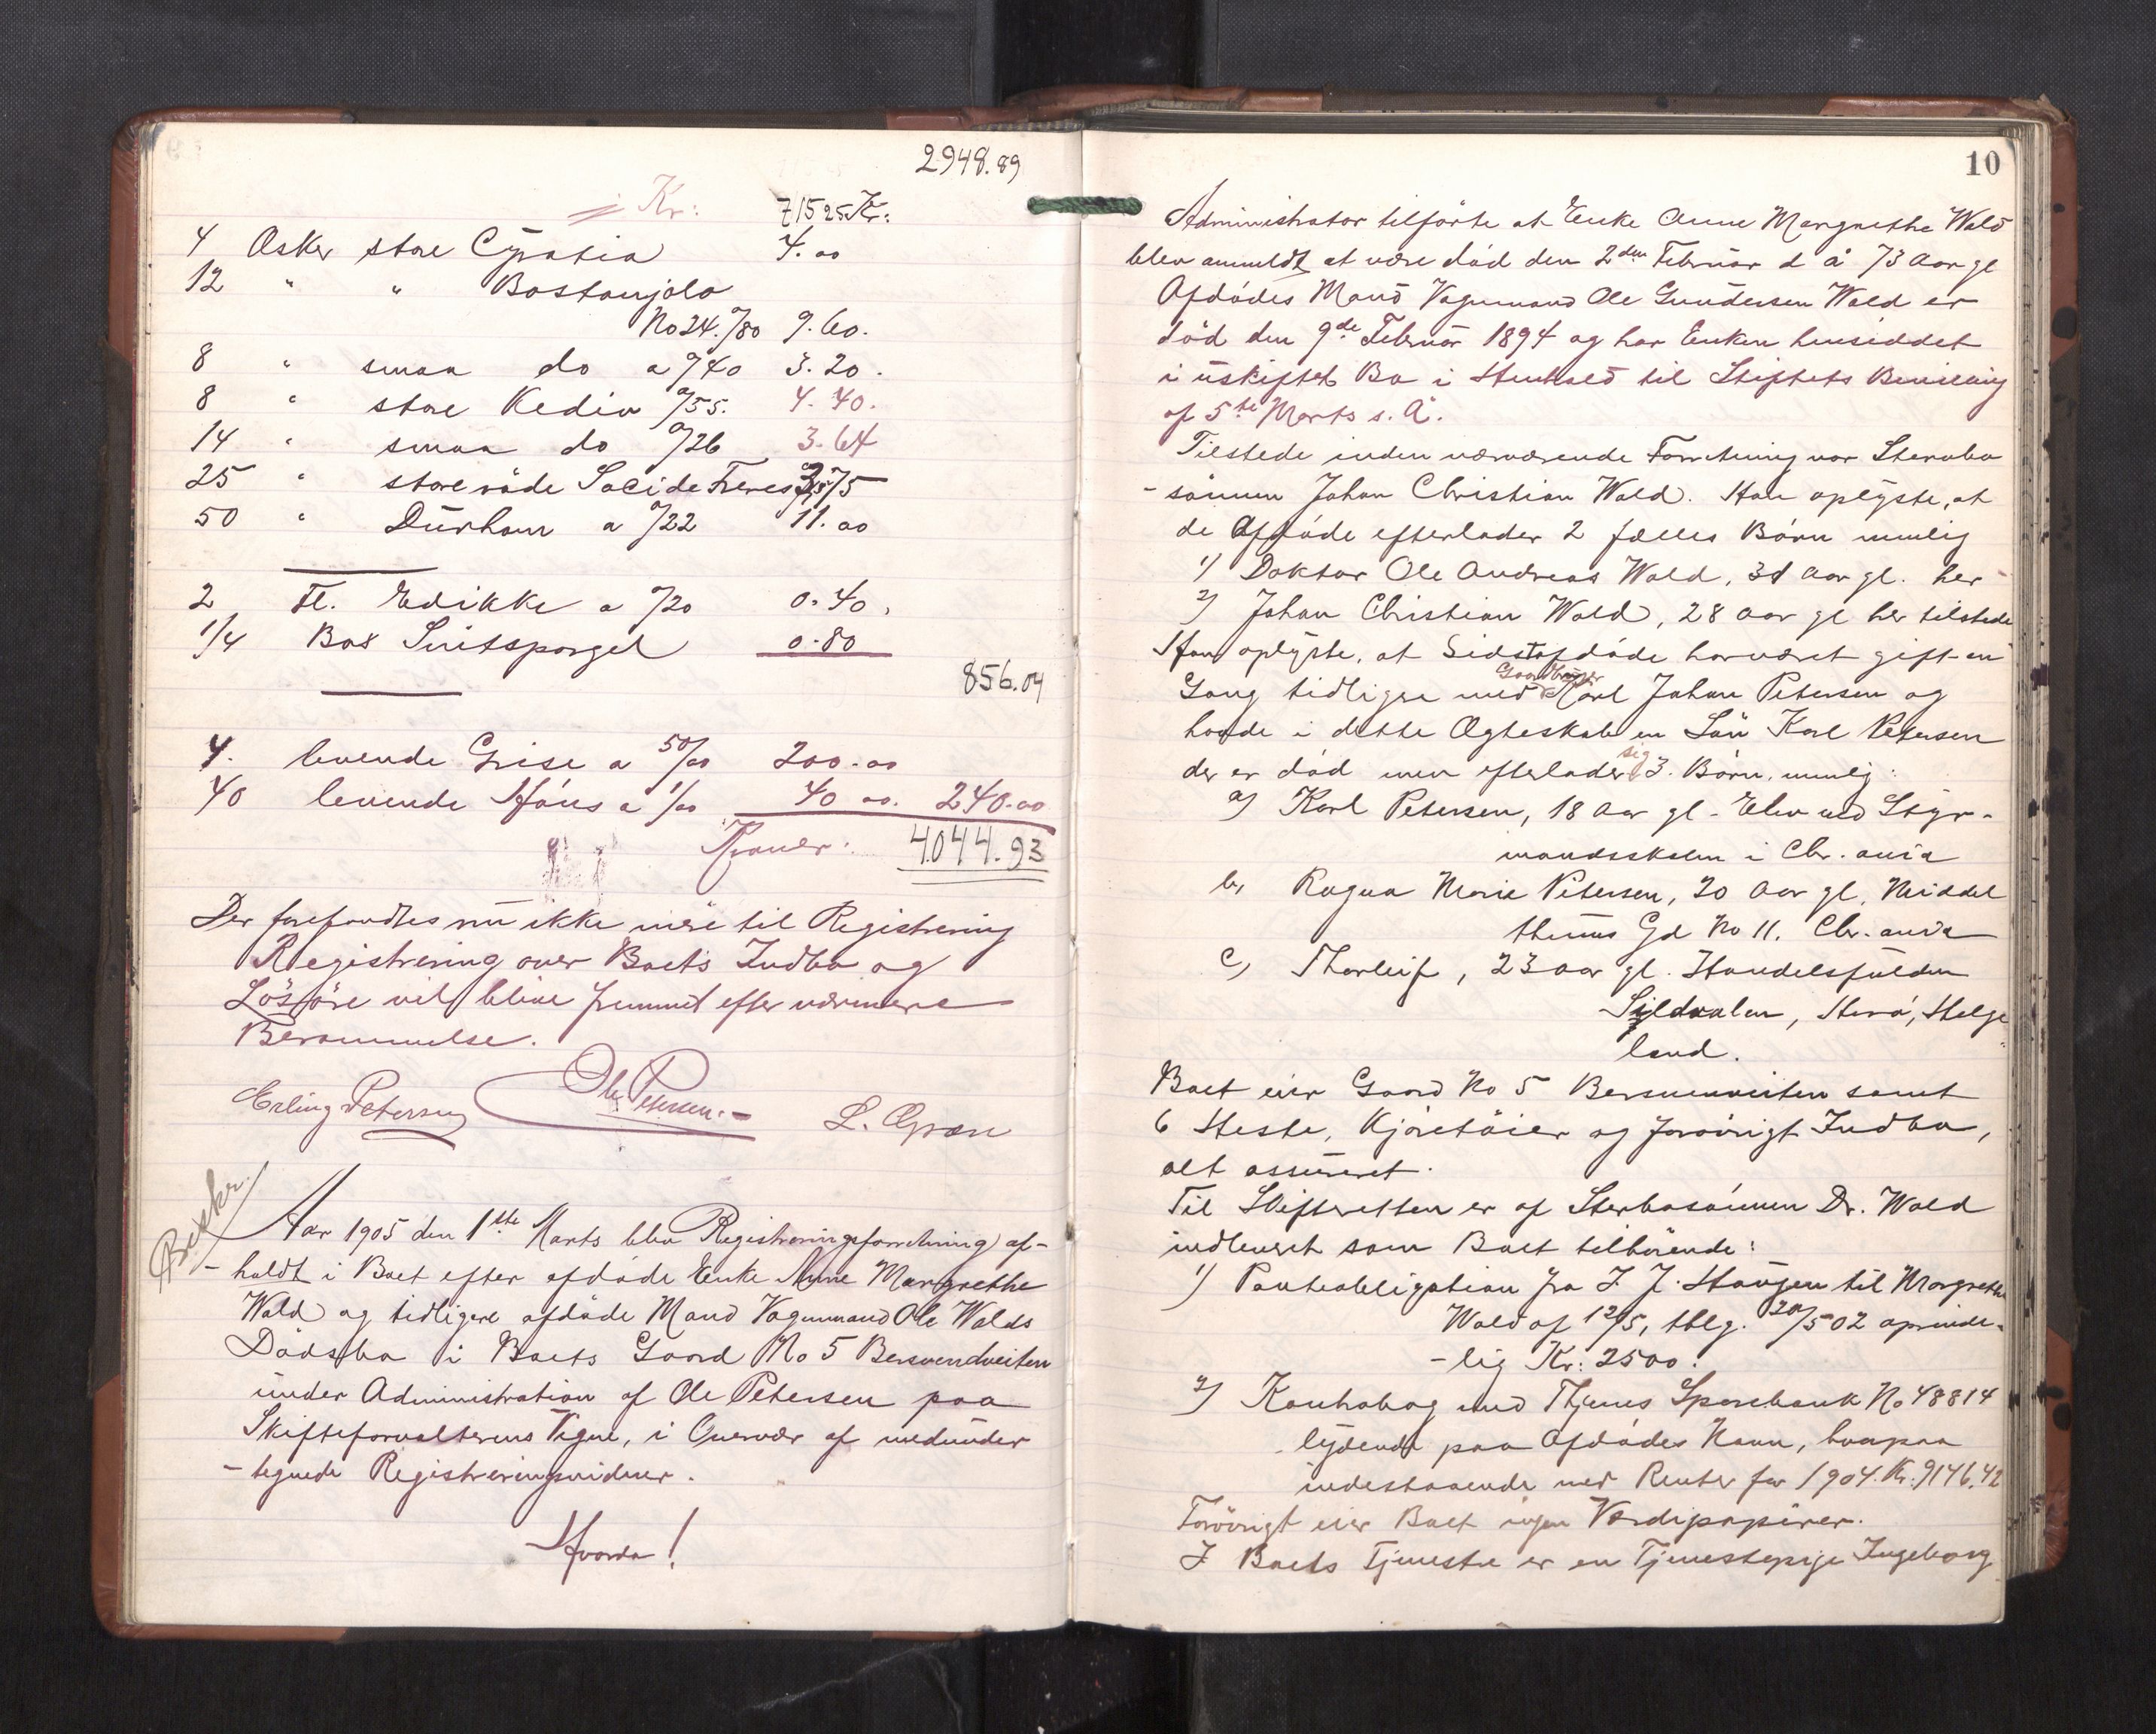 2948.89
i Kr: 715 25 Kr:
4 Æsker store Cypratia 4.00
12 " " Bostanjolo
No 24. a/80 9.60.
8 " smaa do a /40 3.20.
8 " store Kedive a/55. 4.40.
14 " smaa do a/26 3.64
25 " store røde Soci de Freres 75
50 " Dürham a /22 11.00
2 Fl. Edikke a /20 0.40.
1/4 Box Snitsparges 0.80
856.04
4. levende Grise a 50/00 200.00
40 levende Høns a 1/00 40 00. 240.00
Kroner: 4044.93
Der forefandtes nu ikke mere til Registrering
Registrering over Boets Indbo og
Løsøre vil blive fremmet efter nærmere
Berammelse.
Erling Petersen Ole Petersen.- L. Græn
Beskr.
Aar 1905 den 1ste Marts blev Registreringsforretning af-
-holdt i Boet efter afdøde Enke Anne Margrethe
Wold og tidligere afdøde Mand Vognmand Ole Wolds
Dødsbo i Boets Gaard No 5 Bersvendveiten
under Administration af Ole Petersen paa
Skifteforvalterens Vegne, i Overvær af medunder
-tegnede Registreringsvidner.
Hvorda!
10
Administrator tilførte at Enke Anne Margrethe Wold
blev anmeldt at være død den 2den Februar d å 73 Aar gl
Afdødes Mand Vognmand Ole Gundersen Wold er
død den 9de Februar 1894 og har Enken hensiddet
i uskiftet Bo i Henhold til Skiftets Bevilling
af 5te Marts s. A.
Tilstede under nærværende Forretning var Sterbo
-sønnen Johan Christian Wold. Han oplyste, at
de Afdøde efterlader 2 fælles Børn nemlig
1) Doktor Ole Andreas Wold, 31 Aar gl. her
2) Johan Christian Wold, 28 Aar gl her tilstede
Han oplyste, at Sidstafdøde har været gift en
Gang tidligere med Gaardbruger Karl Johan Petersen og
havde i dette Ægteskab en Søn Karl Petersen
der er død men efterlader sig 3. Børn, nemlig:
a) Karl Petersen, 18 Aar gl - Elev ved Styr-
mandsskolen i Chr.ania
b, Ragna Marie Petersen, 20 Aar gl, Middel
thuns Gd No 11. Chr.ania
c, Thorleif, 23 Aar gl. Handelsfuldm
Sildvalen, Herø, Helge
land.
Boet eier Gaard No 5 Bersvenveiten samt
6 Heste, Kjøretøier og forøvrigt Indbo,
alt assureret.
Til Skifteretten er af Sterbosønnen Dr. Wold
indleveret som Boet tilhørende:
1) Panteobligation fra I. J. Haugen til Margrethe
Wold af 12/5, thlg. 20/5 02 oprinde-
-lig Kr: 2500.
2) Kontrabog med Thjems Sparebank No 48814
lydende paa Afdødes Navn, hvorpaa
indestaaende med Renter for 1904. Kr. 9146.42
Forøvrigt eier Boet ingen Værdipapirer.
I Boets Tjeneste er en Tjenestepige Ingeborg